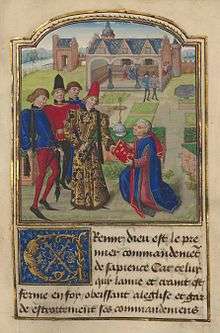 CRemir dieu est le pre
mier commandement
de sapience Car celuy
qui laime et craint est
ferme en foy obeissant a leglise et gar
de estroittement ses commandemens